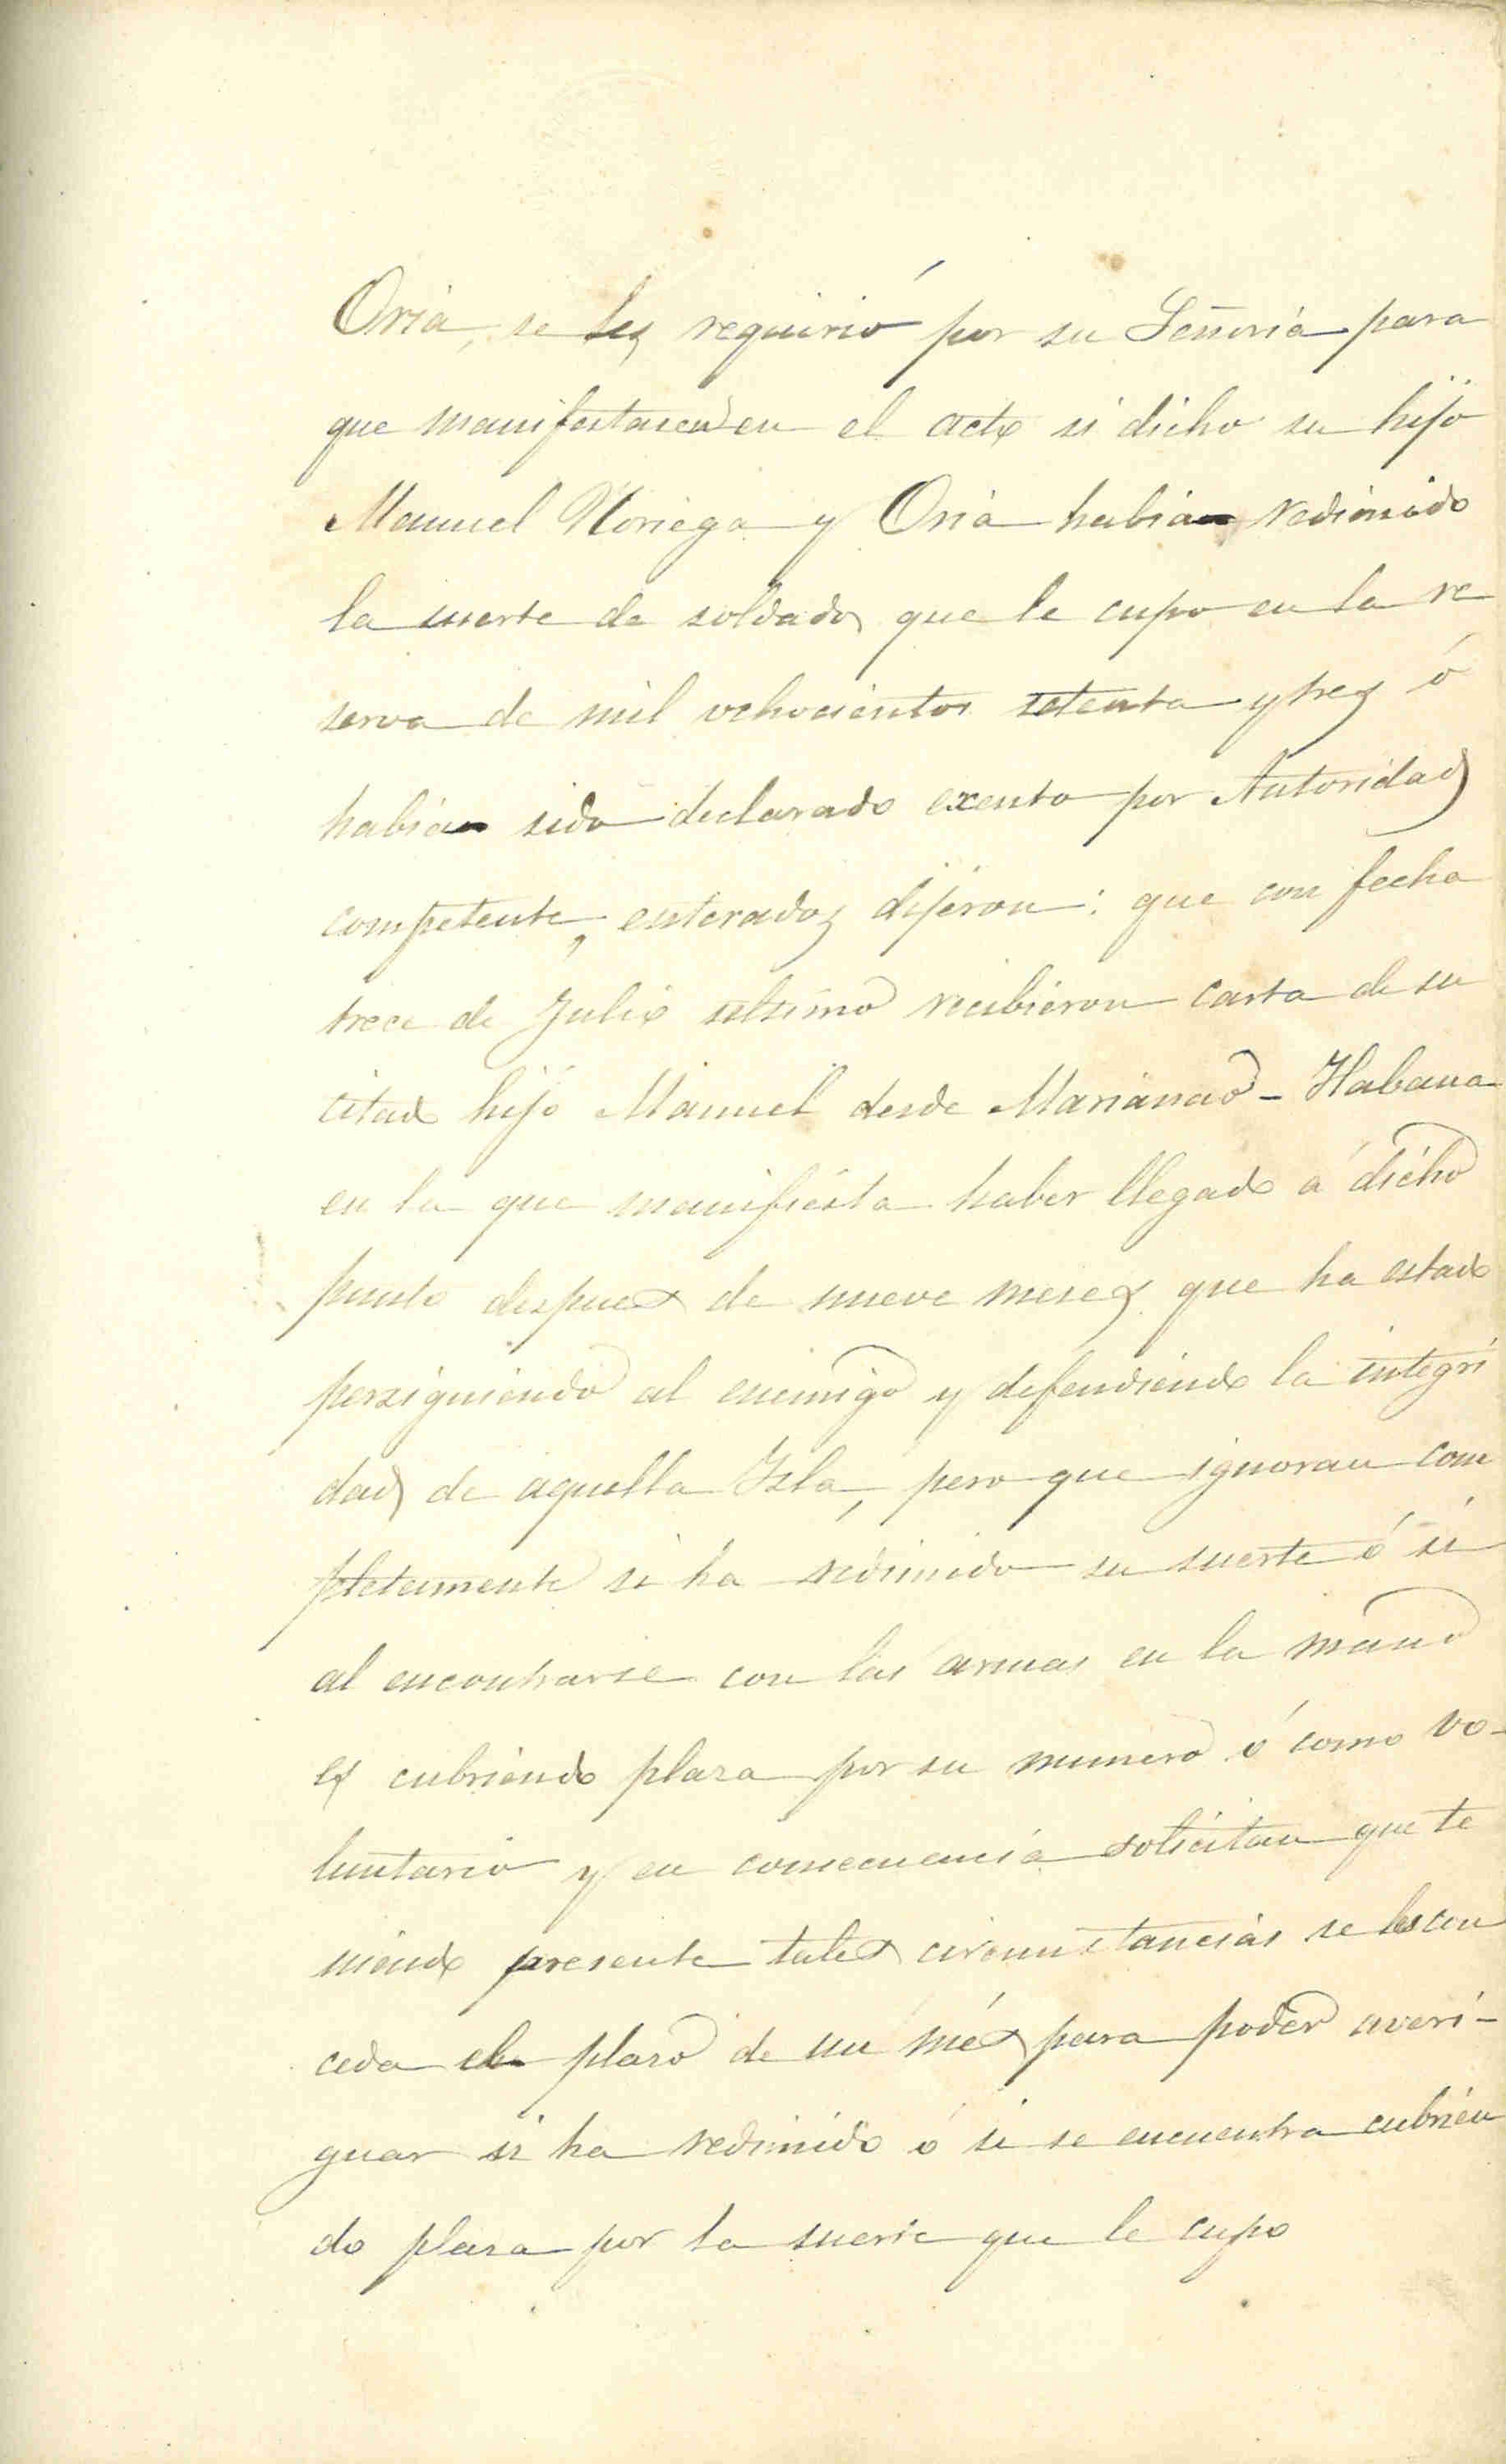 Oria, se les requirió por su Señoria para
que manifestasen en el acto si dicho su hijo
Manuel Noriega y Oria habia redimido
la suerte de soldado que le cupo en la re
serva de mil ochocientos setenta y tres ó
habia sido declarado exento por Autoridad
competente, enterados dijeron: que con fecha
trece de Julio ultimo recibieron carta de su
citado hijo Manuel desde Marianao - Habana
en la que manifiesta haber llegado á dicho
punto despues de nueve meses que ha estado
persiguiendo al enemigo y defendiendo la integri
dad de aquella Isla, pero que ignoran com
pletamente si ha redimido su suerte ó si
al encontrarse con las armas en la mano
es cubriendo plaza por su numero ó como vo-
luntario y en consecuencia solicitan que te
niendo presente tales circunstancias se les con
ceda el plaso de un més para poder averi-
guar si ha redimido ó si se encuentra cubrien
do plaza por la suerte que le cupo